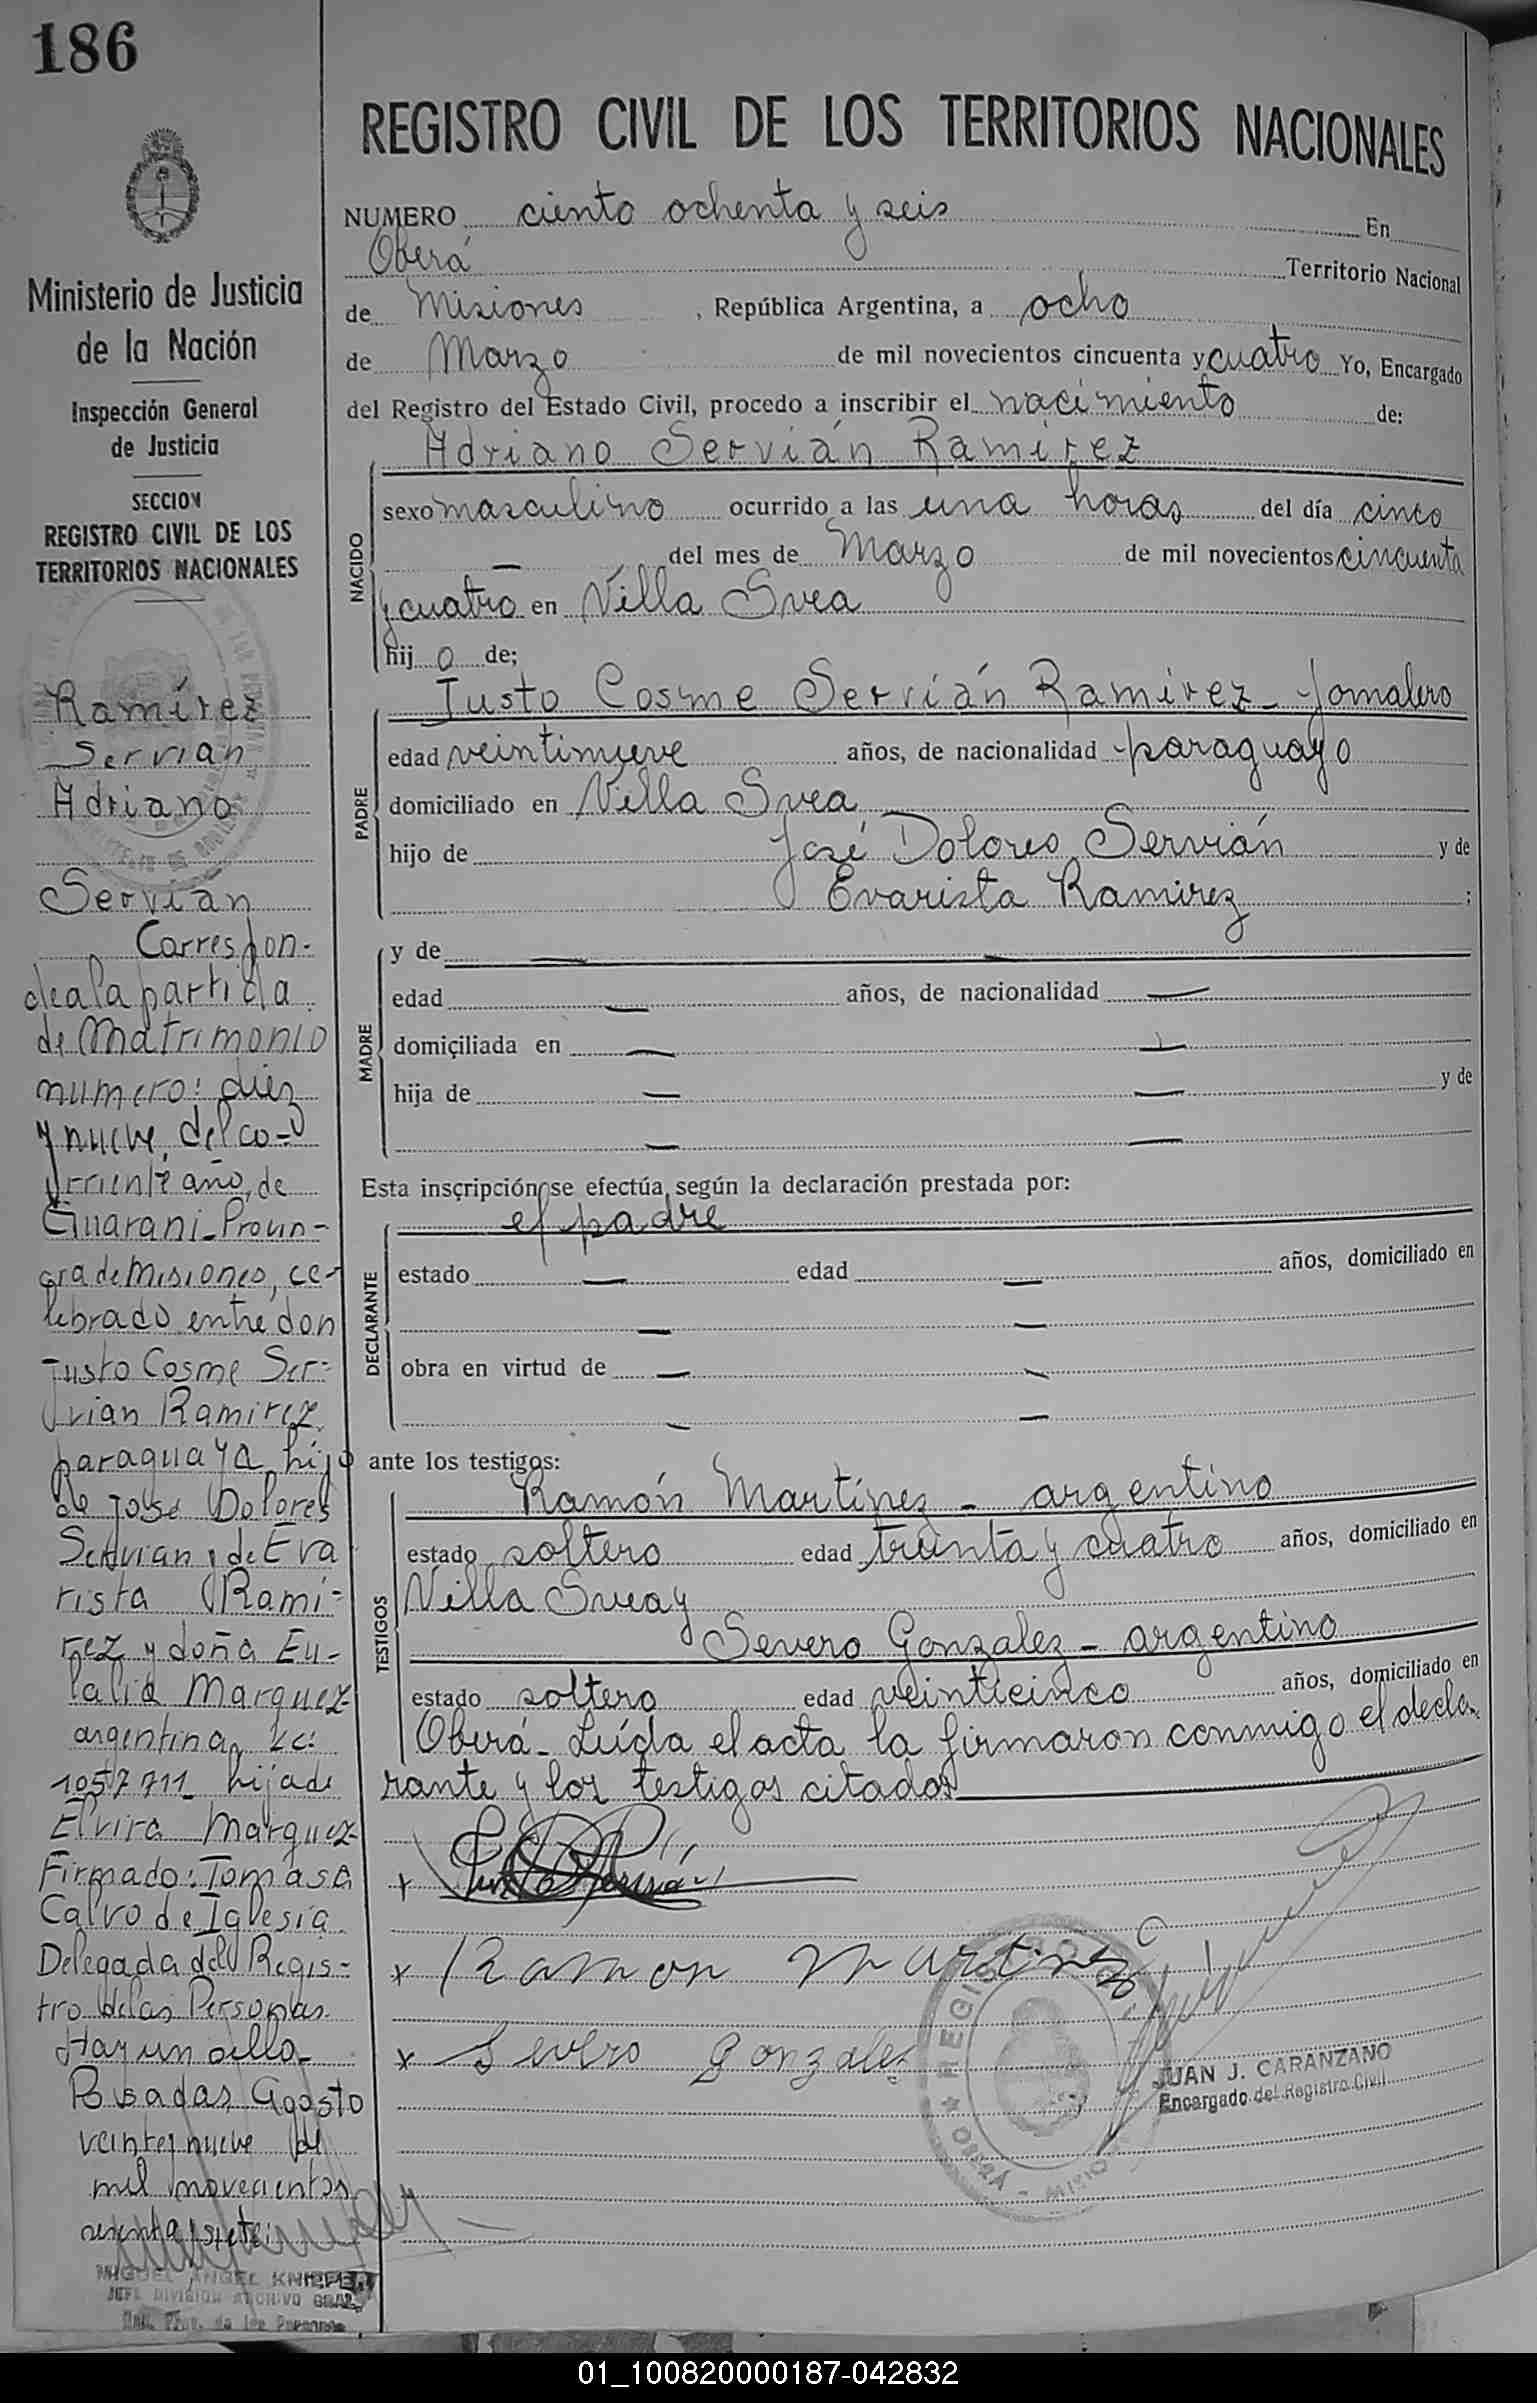 186
Ministerio de Justicia
de la Nación
Inspección General
de Justicia
SECCION
REGISTRO CIVIL DE LOS
TERRITORIOS NACIONALES
Ramírez
Servian
Adriano
Servián
Correspon-
de a la partida
de Matrimonio
numero: diez
y nueve, del co-
rriente año, de
Guarani-Provin-
cia de Misiones, ce-
lebrado entre don
Justo Cosme Ser-
vian Ramirez
paraguaya hijo
de José Dolores
Servian y de Eva
rista Rami-
rez y doña Eu-
lalia Marquez
argentina
1057711_ hija de
Elvira Marquez-
Firmado: Tomasa
Calvo de Iglesia
Delegada del Regis-
tro de las Personas.
Hay un sello_
Posadas, Agosto
veinte y nueve de
mil novecientos
sesenta y siete
MIGUEL ANGEL KNIPPE
JEFE DIVISION ARCHIVO GRAL
REGISTRO CIVIL DE LOS TERRITORIOS NACIONALES
NUMERO ciento ochenta y seis En
Oberá Territorio Nacional
de Misiones, República Argentina, a ocho
de Marzo de mil novecientos cincuenta y cuatro Yo, Encargado
del Registro del Estado Civil, procedo a inscribir el nacimiento de:
Adriano Servián Ramírez
NACIDO
sexo masculino ocurrido a las una horas del día cinco
— del mes de Marzo de mil novecientos cincuenta
y cuatro en Villa Svea
hijo de;
Justo Cosme Servián Ramírez - Jornalero
PADRE
edad veintinueve años, de nacionalidad paraguayo
domiciliado en Villa Svea
hijo de José Dolores Servián y de
Evarista Ramirez ;
MADRE
y de — —
edad — años, de nacionalidad —
domiciliada en — —
hija de — — y de
— —
Esta inscripción se efectúa, según la declaración prestada por:
el padre
DECLARANTE
estado — edad — años, domiciliado en
— —
obra en virtud de — —
— —
ante los testigos:
Ramón Martínez - argentino
TESTIGOS
estado soltero edad treinta y cuatro años, domiciliado en
Villa Svea y
Severo Gonzalez - argentino
estado soltero edad veinticinco años, domiciliado en
Oberá - Leída el acta la firmaron conmigo el decla-
rante y los testigos citados
x Justo Servián
x Ramon Martinez
x Severo Gonzales
REGIS
OBERÁ - MISIO
JUAN J. CARANZANO
Encargado del Registro Civil
01_100820000187-042832